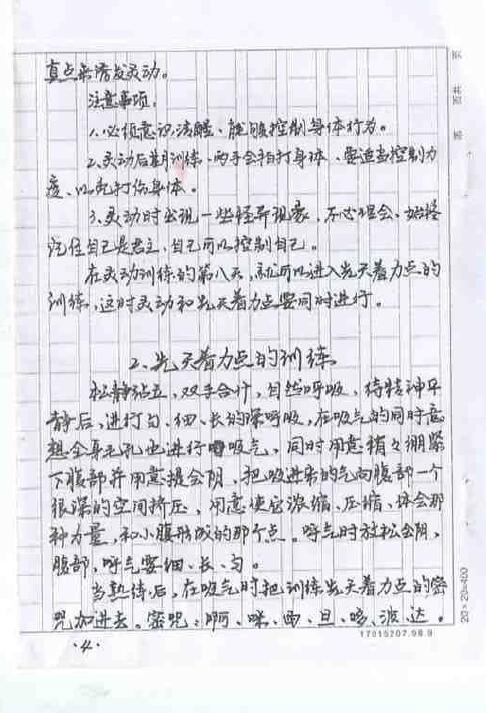 真点来诱发灵动。
注意事项:
1.必须意识清醒、能够控制身体行为。
2.灵动后期训练、两手会拍打身体、要适当控制力
度、以免打伤身体。
3.灵动时出现一些怪异现象、不必理会、始终
记住自己是君主,自己可以控制自己。
在灵动训练的第八天,就可以进入先天着力点的
训练,这时灵动和先天着力点要同时进行。
2.先天着力点的训练
松静站立,双手合什,自然呼吸,待精神平
静后,进行匀、细、长的深呼吸,在吸气的同时意
想全身毛孔也进行吸气,同时用意稍々绷紧
下腹部并用意提会阴,把吸进来的气向腹部一个
很深的空间挤压,用意使它浓缩、压缩、体会那
种力量,和小腹形成的那个点。呼气时放松会阴,
腹部,呼气要细、长、匀。
当熟练后,在吸气时把训练先天着力点的密
咒加进去。密咒:啊、咪、西、旦、哆、波、达。
·4·
20×20=400
17015207.98.9
页 共 页 第